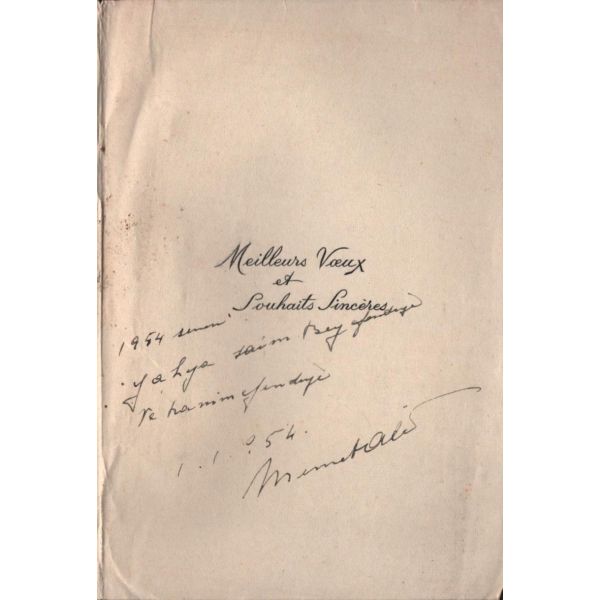 Meilleurs Vœux
et
Souhaits Sincères
1954 senei
Yahya saim Bey fendiye
Ve hanımefendiye
1.1.954.
Memet Ali